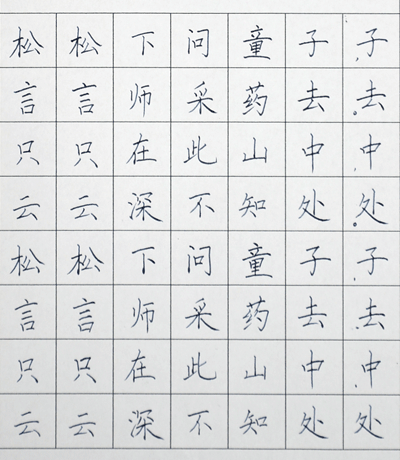 松松下问童子子
言言师采药去去
只只在此山中中
云云深不知处处
松松下问童子子
言言师采药去去
只只在此山中中
云云深不知处处